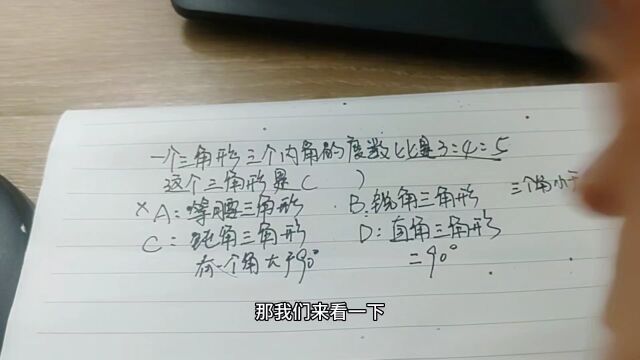 一个三角形三个内角的度数比是3:4:5
这个三角形是( )
×A:等腰三角形 B:锐角三角形 三个角小于
C:钝角三角形 D:直角三角形
有一个角大于90° =90°
那我们来看一下